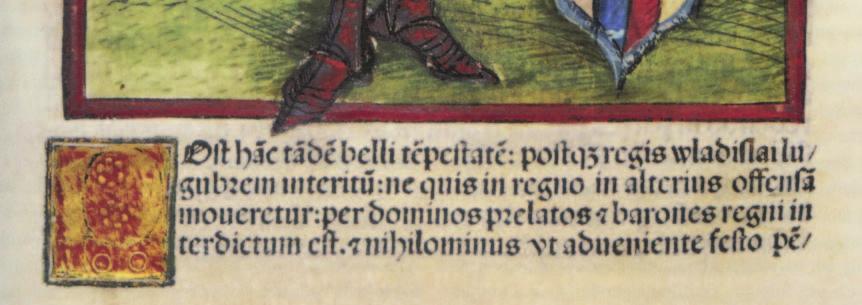 POſt hāc tādē belli tēpeſtatē: poſtqȝ regis wladiſlai lu/
gubꝛem interitū: ne quis in regno in alterius offenſā
moueretur: per dominos pꝛelatos ⁊ barones regni in
terdictum eſt. ⁊ nihilominus vt adueniente feſto pē/